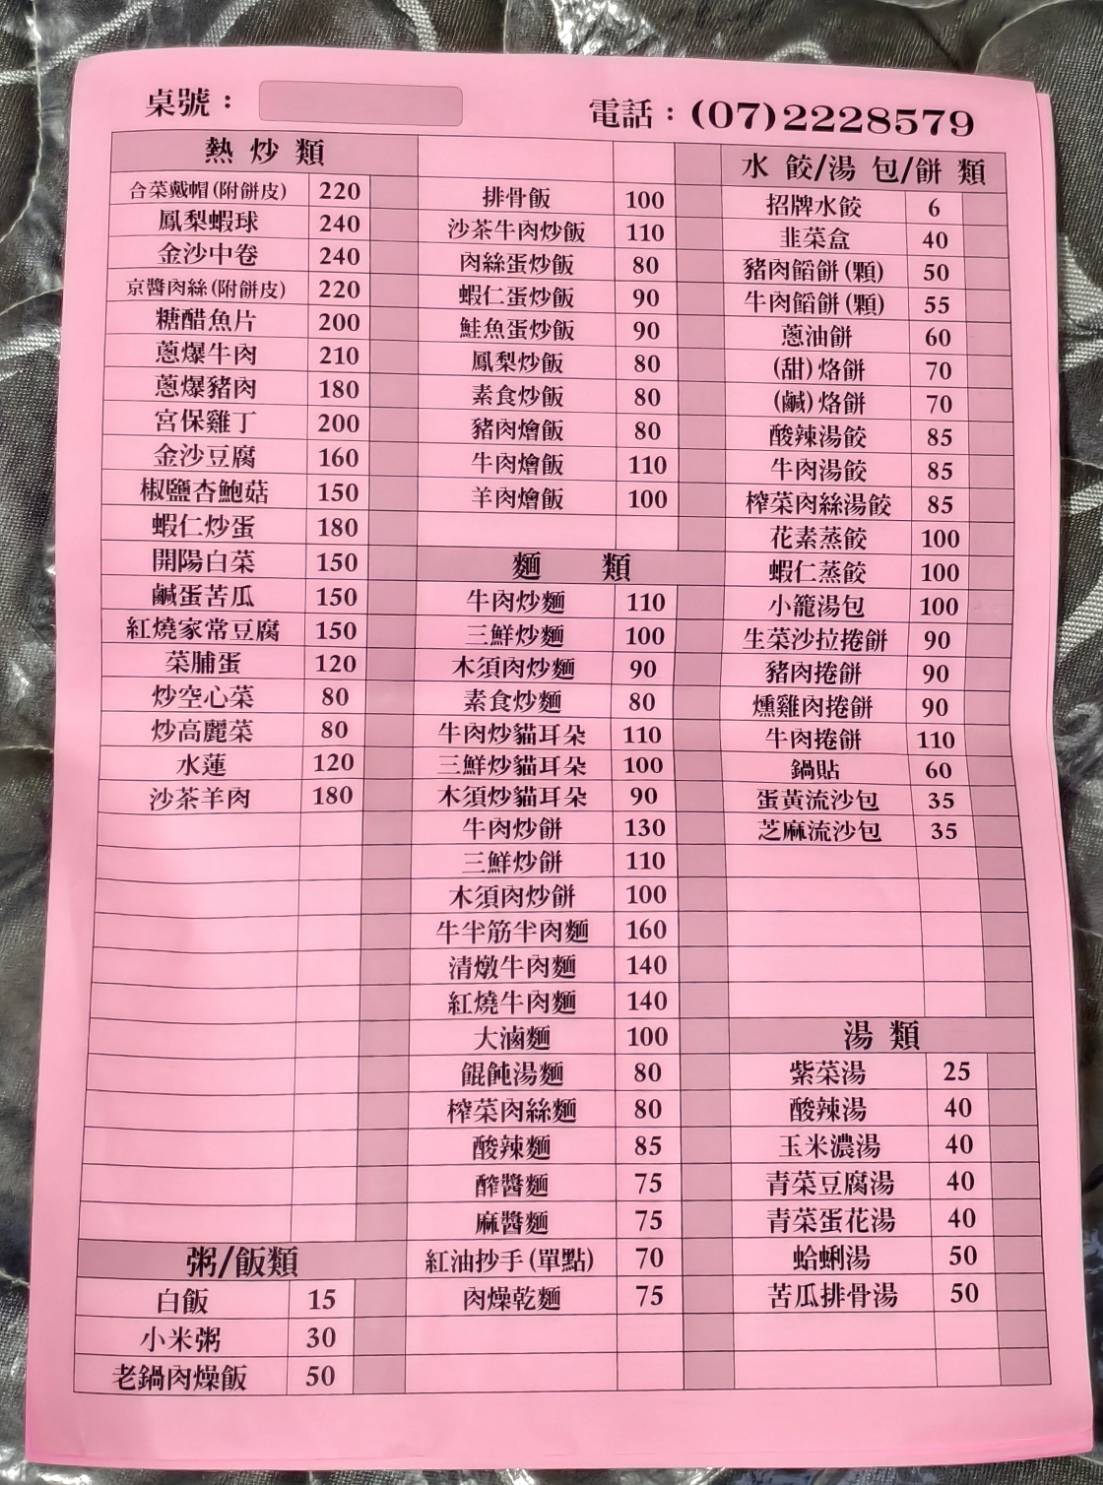 桌號：
電話：(07)2228579
熱炒類
合菜戴帽(附餅皮) 220
鳳梨蝦球 240
金沙中卷 240
京醬肉絲(附餅皮) 220
糖醋魚片 200
蔥爆牛肉 210
蔥爆豬肉 180
宮保雞丁 200
金沙豆腐 160
椒鹽杏鮑菇 150
蝦仁炒蛋 180
開陽白菜 150
鹹蛋苦瓜 150
紅燒家常豆腐 150
菜脯蛋 120
炒空心菜 80
炒高麗菜 80
水蓮 120
沙茶羊肉 180
粥/飯類
白飯 15
小米粥 30
老鍋肉燥飯 50
排骨飯 100
沙茶牛肉炒飯 110
肉絲蛋炒飯 80
蝦仁蛋炒飯 90
鮭魚蛋炒飯 90
鳳梨炒飯 80
素食炒飯 80
豬肉燴飯 80
牛肉燴飯 110
羊肉燴飯 100
麵類
牛肉炒麵 110
三鮮炒麵 100
木須肉炒麵 90
素食炒麵 80
牛肉炒貓耳朵 110
三鮮炒貓耳朵 100
木須炒貓耳朵 90
牛肉炒餅 130
三鮮炒餅 110
木須肉炒餅 100
牛半筋半肉麵 160
清燉牛肉麵 140
紅燒牛肉麵 140
大滷麵 100
餛飩湯麵 80
榨菜肉絲麵 80
酸辣麵 85
醡醬麵 75
麻醬麵 75
紅油抄手(單點) 70
肉燥乾麵 75
水餃/湯包/餅類
招牌水餃 6
韭菜盒 40
豬肉餡餅(顆) 50
牛肉餡餅(顆) 55
蔥油餅 60
(甜)烙餅 70
(鹹)烙餅 70
酸辣湯餃 85
牛肉湯餃 85
榨菜肉絲湯餃 85
花素蒸餃 100
蝦仁蒸餃 100
小籠湯包 100
生菜沙拉捲餅 90
豬肉捲餅 90
燻雞肉捲餅 90
牛肉捲餅 110
鍋貼 60
蛋黃流沙包 35
芝麻流沙包 35
湯類
紫菜湯 25
酸辣湯 40
玉米濃湯 40
青菜豆腐湯 40
青菜蛋花湯 40
蛤蜊湯 50
苦瓜排骨湯 50